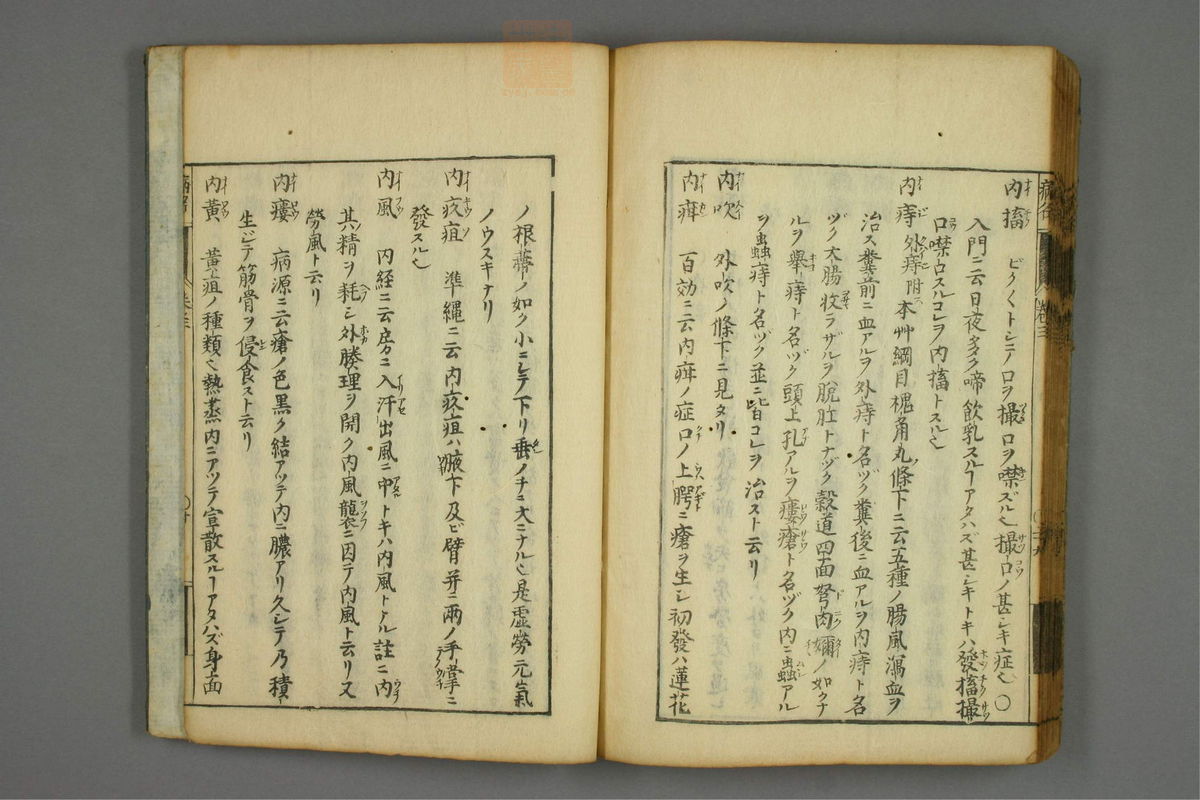 内搐 ビクビクトシテノロヲ撮口ヲ噤ズル也撮口ノ甚シキ症也〇
入門ニ云日夜多ク啼飲乳スルヿアタハズ甚シキトキハ發搐撮
口噤スルコレヲ内搐トスル也
内痔 外痔附 本艸綱目槐角丸條下ニ云五種ノ腸風瀉血ヲ
治ス糞前ニ血アルヲ外痔ト名ヅク糞後ニ血アルヲ内痔ト名
ヅク大腸收ラザルヲ脱肛トナヅク穀道四面弩肉嬭ノ如クナ
ルヲ舉痔ト名ヅク頭上孔アルヲ瘻瘡ト名ヅク内ニ蟲アル
ヲ蟲痔ト名ヅク並ニ皆コレヲ治スト云リ
内吹 外吹ノ條下ニ見タリ
内疳 百効ニ云内疳ノ症口ノ上腭ニ瘡ヲ生シ初發ハ蓮花
ノ根蔕ノ如ク小ニシテ下リ垂ノチニ大ニナル也是虚勞元氣
ノウスキナリ
内疚疽 準繩ニ云内疚疽ハ腋下及ビ臂并ニ兩ノ手掌ニ
發スル也
内風 内経ニ云房ニ入汗出風ニ中トキハ内風トナル註ニ内
其精ヲ耗シ外腠理ヲ開ク内風襲ニ因テ内風ト云リ又
勞風ト云リ
内瘻 病源ニ云瘡ノ色黒ク結アツテ内ニ膿アリ久シテ乃積
生シテ筋骨ヲ侵食スト云リ
内黄 黄疸ノ種類也熱蒸内ニアツテ宣散スルヿアタハズ身面